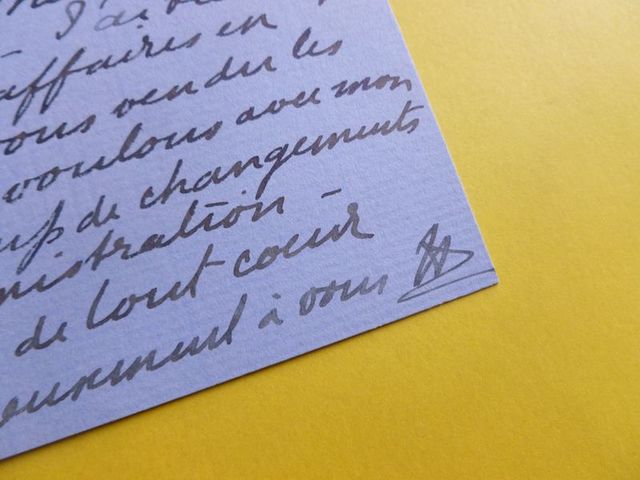 J'ai
affaires en
vous vendu les
voulons avec mon
de changements
nistration –
de tout coeur
à vous